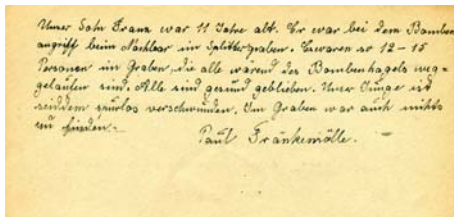 Unser Sohn Franz war 11 Jahre alt. Er war bei dem Bomben
angriff beim Nachbar im Splittergraben. Es waren so 12-15
Personen im Graben, die alle wärend des Bombenhagels weg-
gelaufen sind. Alle sind gesund geblieben. Unser Junge ist
seitdem spurlos verschwunden. Im Graben war auch nichts
zu finden.-
Paul Fränkemölle.